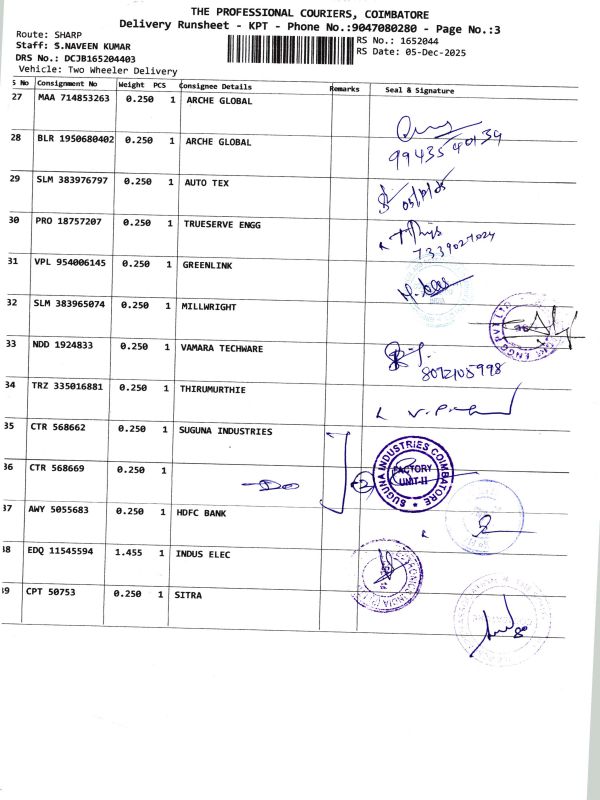 THE PROFESSIONAL COURIERS, COIMBATORE
Delivery Runsheet - KPT - Phone No.:9047080280 - Page No.:3
Route: SHARP
RS No.: 1652044
Staff: S.NAVEEN KUMAR
RS Date: 05-Dec-2025
DRS No.: DCJB165204403
Vehicle: Two Wheeler Delivery
S No Consignment No Weight PCS Consignee Details Remarks Seal & Signature
27 MAA 714853263 0.250 1 ARCHE GLOBAL
28 BLR 1950680402 0.250 1 ARCHE GLOBAL
99435 40134
29 SLM 383976797 0.250 1 AUTO TEX
30 PRO 18757207 0.250 1 TRUESERVE ENGG
7339027024
31 VPL 954006145 0.250 1 GREENLINK
32 SLM 383965074 0.250 1 MILLWRIGHT
ENGG PVT LTD
33 NDD 1924833 0.250 1 VAMARA TECHWARE
8072105998
34 TRZ 335016881 0.250 1 THIRUMURTHIE
35 CTR 568662 0.250 1 SUGUNA INDUSTRIES
SUGUNA INDUSTRIES COIMBATORE
FACTORY
UNIT-II
36 CTR 568669 0.250 1 Do
37 AWY 5055683 0.250 1 HDFC BANK
38 EDQ 11545594 1.455 1 INDUS ELEC
39 CPT 50753 0.250 1 SITRA